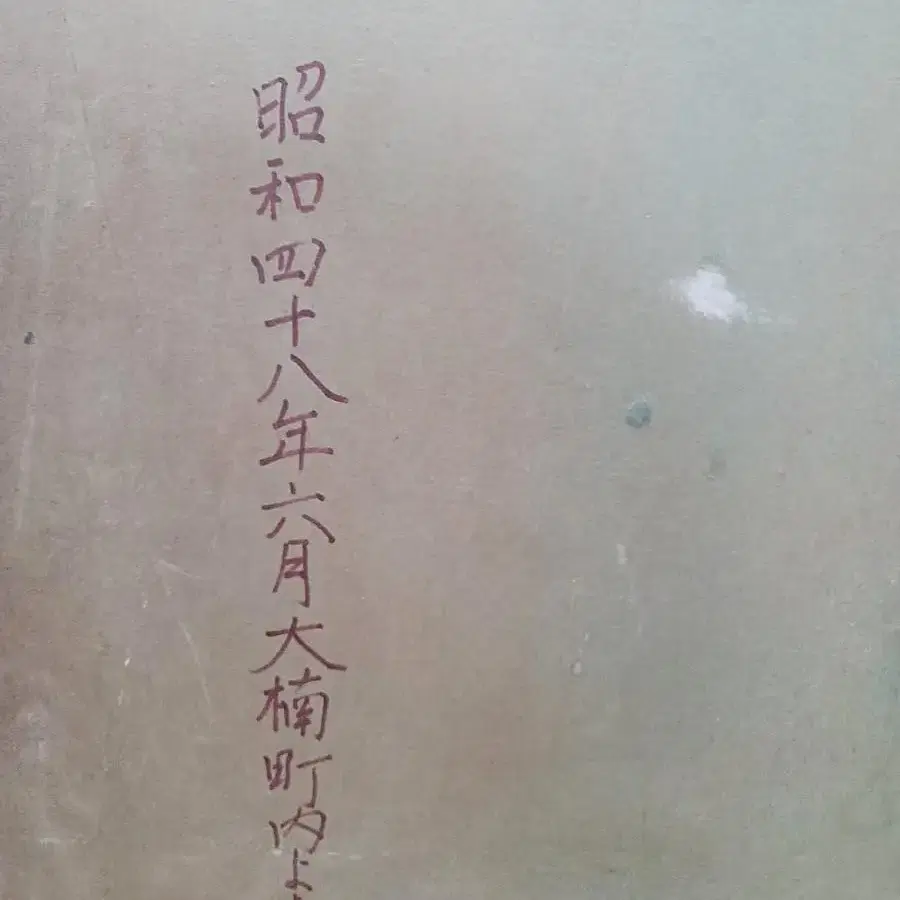 昭和四十八年六月大楠町内よ